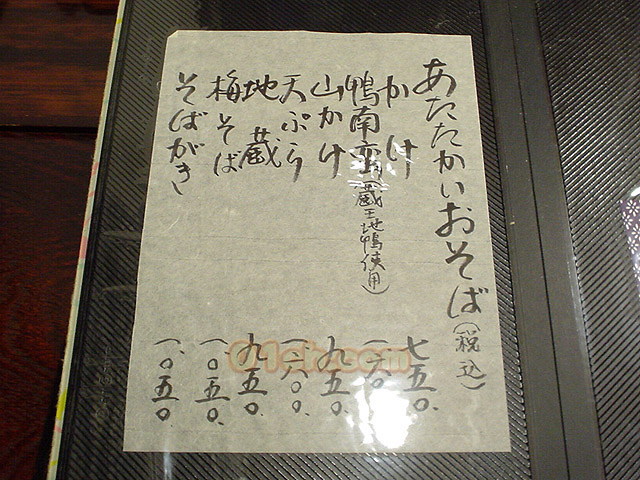 あたたかいおそば(税込)
かけ 七五〇.
鴨南蛮(蔵王地鴨使用)
山かけ 九五〇.
天ぷら 一六〇〇.
地蔵 九五〇.
梅そば 一〇五〇.
そばがき 一〇五〇.